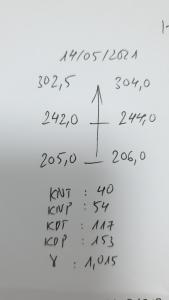 14/05/2021
302,5 304,0
242,0 244,0
205,0 206,0
KNT : 40
KNP : 54
KDT : 117
KDP : 153
γ : 1,015